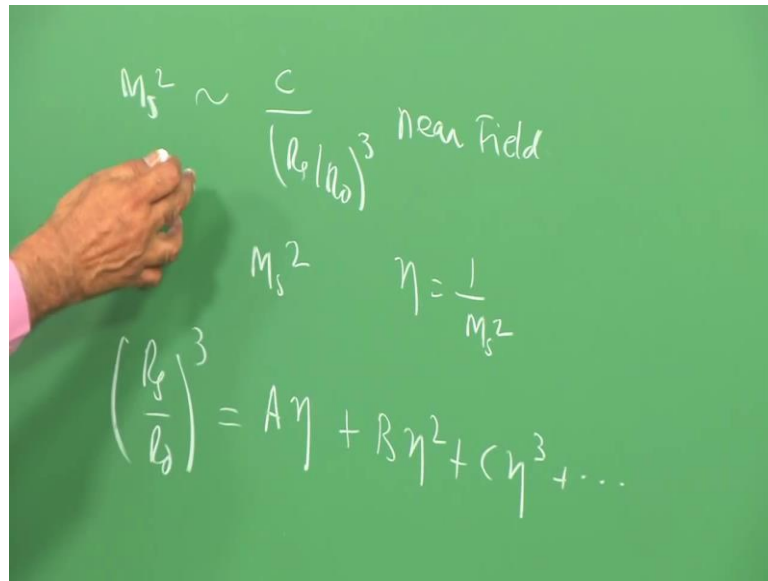 Ms² ~ C/(Rs/R0)³ near Field
Ms² η = 1/Ms²
(Rs/R0)³ = Aη + Bη² + Cη³ + ...